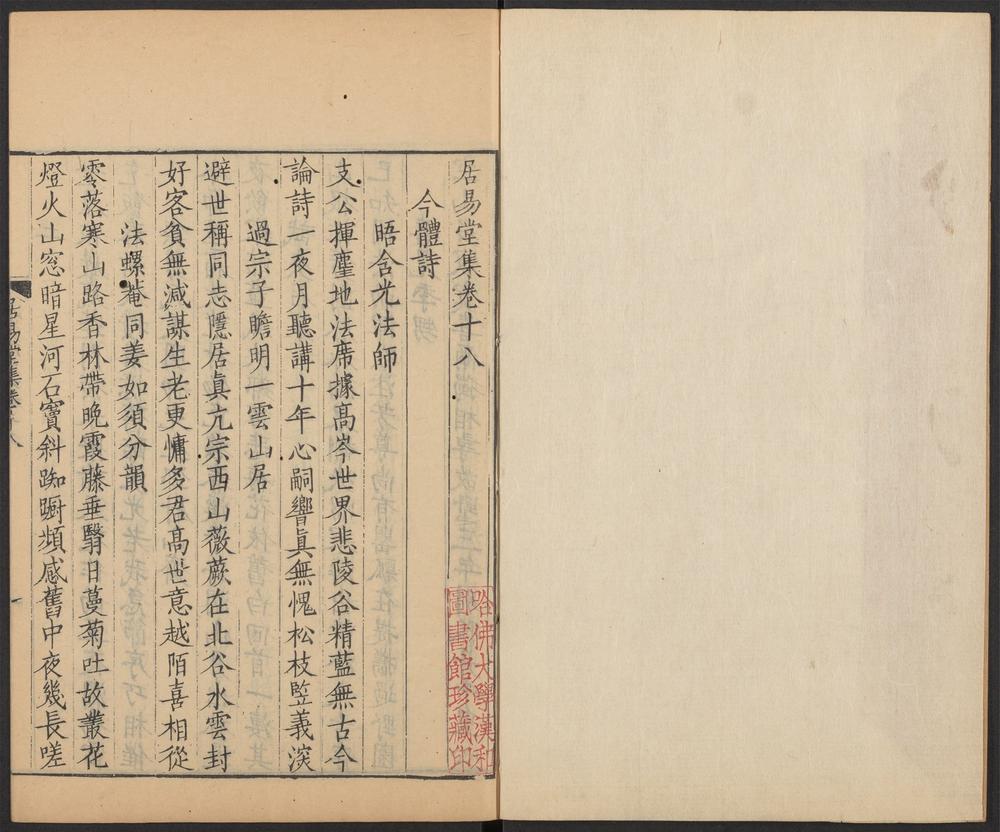 居易堂集卷十八
今體詩
晤含光法師
支公揮麈地法席據高岑世界悲陵谷精藍無古今
論詩一夜月聽講十年心嗣響眞無愧松枝竪義深
過宗子瞻明一雲山居
避世稱同志隱居眞亢宗西山薇蕨在北谷水雲封
好客貧無減謀生老更慵多君高世意越陌喜相從
法螺菴同姜如須分韻
零落寒山路香林帶晚霞藤垂翳日蔓菊吐故叢花
燈火山窓暗星河石竇斜踟躕頻感舊中夜幾長嗟
居易堂集卷十八
一
哈佛大學漢和
圖書館珍藏印